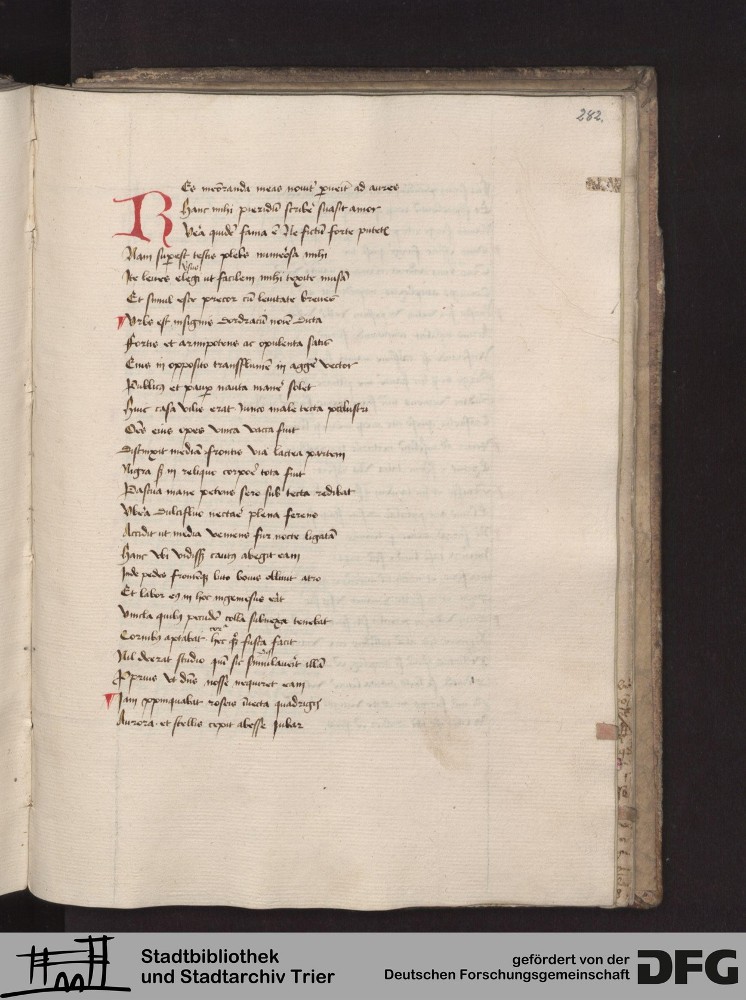 282.
Res memoranda meas nouiter peruenit ad aures
Hanc mihi pieridum scribere suasit amor
Vera quidem fama est Ne fictum forte putetis
Nam superest testis plebs numerosa mihi
Ite leues elegi ut facilem mihi texite musam
Et simul este precor cum leuitate breues
Vrbs est insignis dordracum nomine dicta
Fortis et armipotens ac opulenta satis
Eius in opposito transflumen in aggere vector
Publicus et pauper nauta manere solet
Huic casa vilis erat iunco male tecta palustri
Omnes eius opes vnica vacca fuit
Distinxit mediam frontis via lactea partem
Nigra sed in reliquo corpore tota fuit
Pascua mane petens sero sub tecta redibat
Vbera dulcifluo nectare plena ferens
Accidit ut media veniens fur nocte ligatam
Hanc vbi vidisset cautus abegit eam
Inde pedes frontemque luto bouis ollinit atro
Et labor eius in hoc ingeniosus erat
Vincla quibus pecudem colla subnexa tenebat
Cornibus aptabat hec quasi fusta facit
Nil deerat studio quin sic simulauerit illam
Proprius ut dominus nosse nequiret eam
Iam propinquabat roseis inuecta quadrigis
Aurora et stellis cepit abesse iubar
Stadtbibliothek
und Stadtarchiv Trier
gefördert von der
Deutschen Forschungsgemeinschaft
DFG